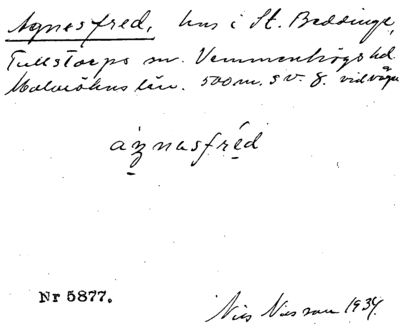 Agnesfred, hus i St. Beddinge,
Tullstorps sn. Vemmenhögs hd
Malmöhus län. 500 m. SV. g. vid väg
áznasfréd
Nr 5877.
Nils Nilsson 1934.